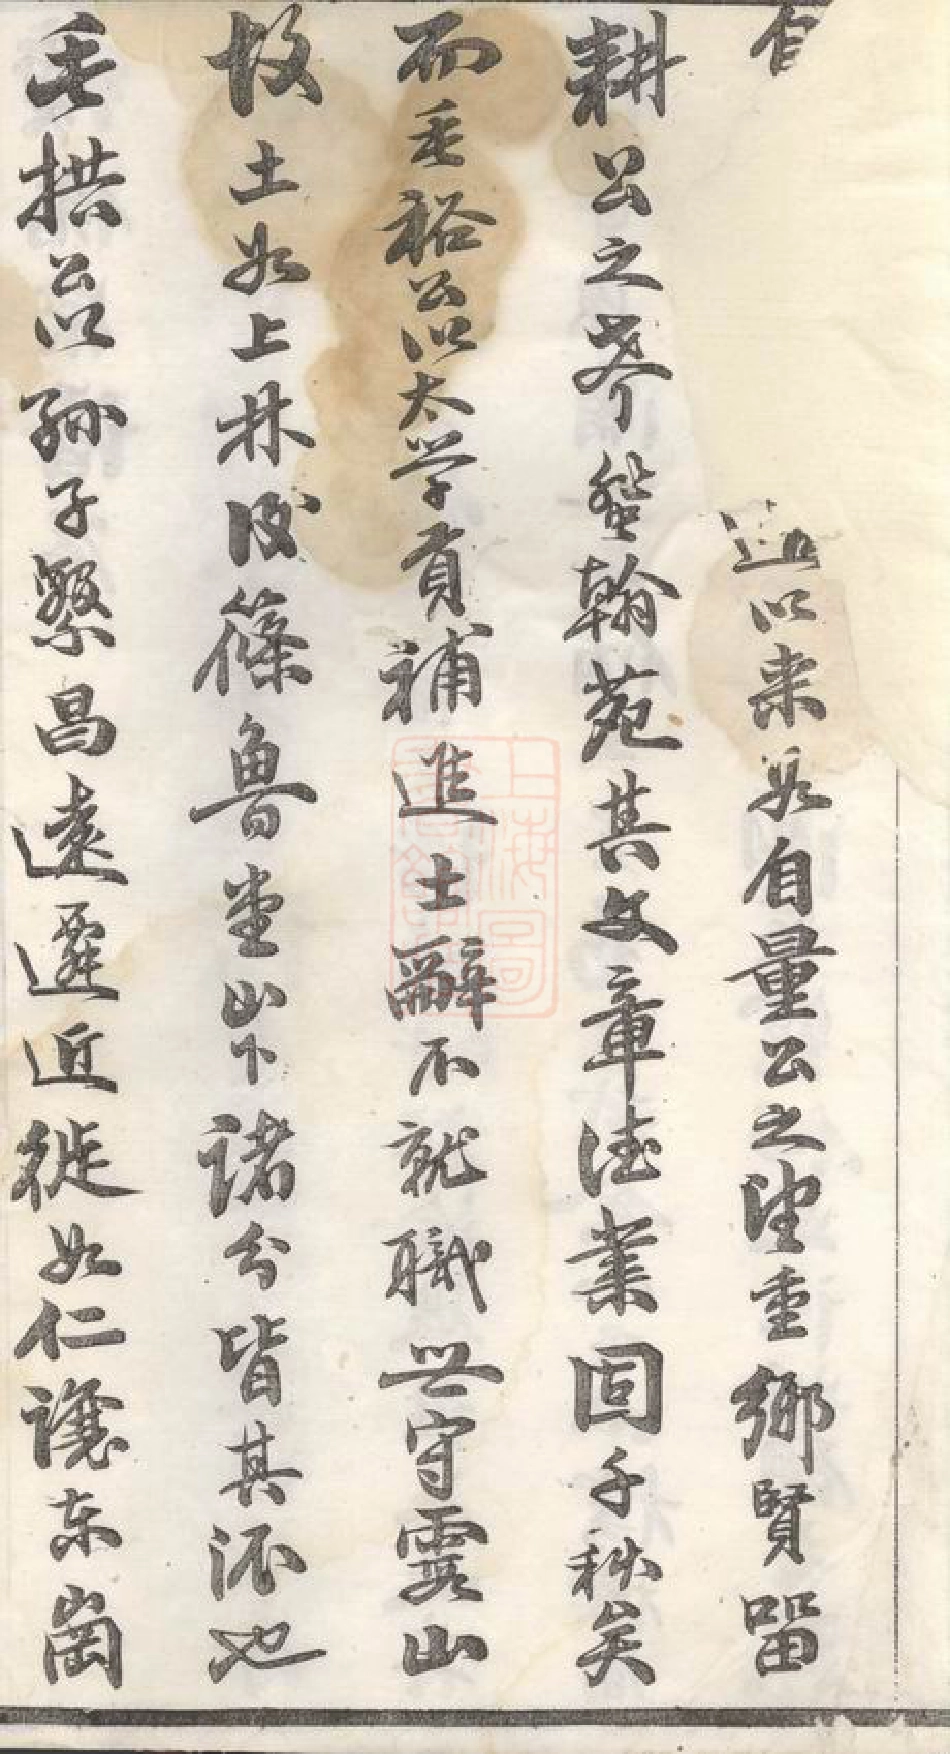 迎以来如自量公之望重鄉賢留
耕公之考登翰苑其文章德業固千秋矣
而垂裕公以太学貢補進士辭不就職世守霞山
故土如上林後篠魯堂山下諸分皆其派也
垂拱公以孫子繁昌遠遷近徙如仁讓东崗